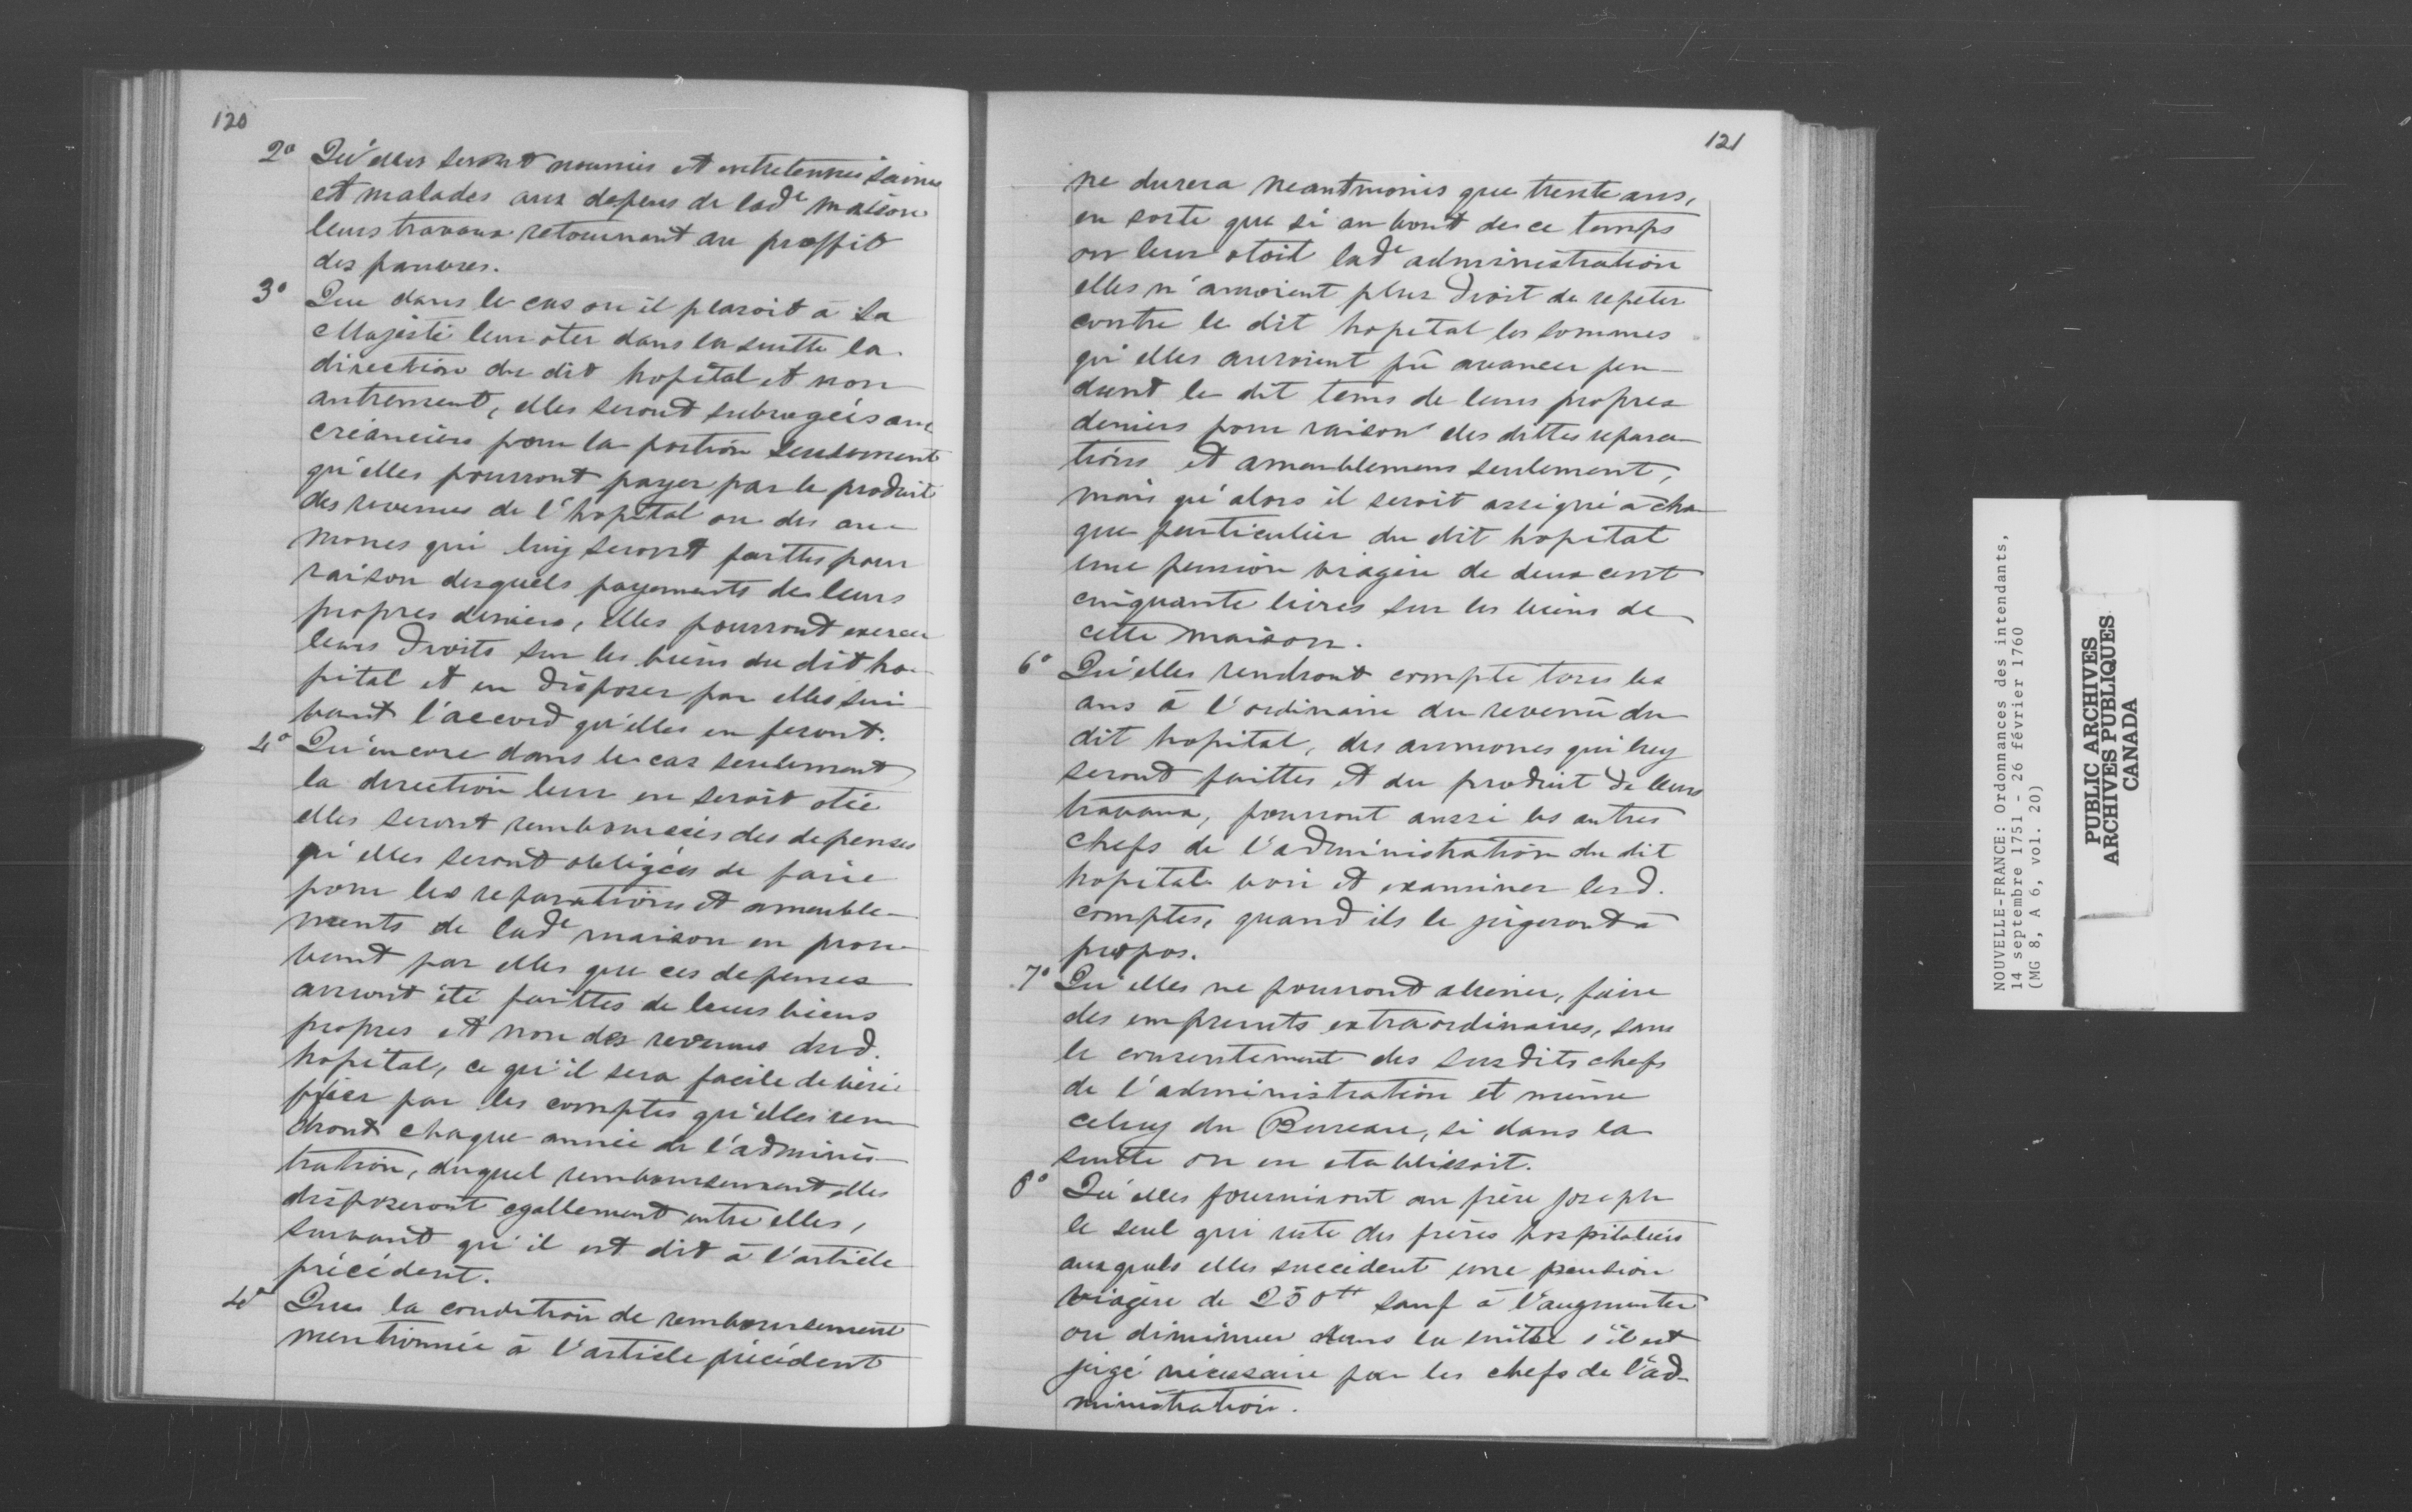 120
2º Qu'elles seront nourries et entretenues saines
et malades aux depens de lade maison
leurs travaux retournant au proffit
des pauvres.
3º Que dans le cas ou il plaroit à Sa
Majesté leur ôter dans la suitte la
direction du dit hopital et non
autrement, elles seront subrogées aux
créanciers pour la portion seulement
qu'elles pourront payer par le produit
des revenus de l'hopital ou des au-
mones qui luy seront faittes pour
raison desquels payements de leurs
propres deniers, elles pourront exercer
leurs droits sur les biens du dit ho-
pital et en disposer par elles sui-
vant l'accord qu'elles en feront.
4º Qu'encore dans le cas seulement
la direction leur en seroit otée
elles seront remboursées des depenses
qu'elles seront obligées de faire
pour les reparations et ameuble-
ments de lade maison en prou-
vant par elles que ces depenses
auront été faittes de leurs biens
propres et non des revenus dud.
hopital, ce qu'il sera facile de véri-
fier par les comptes qu'elles ren-
dront chaque année de l'adminis-
tration, duquel remboursement elles
disposeront egallement entre elles,
suivant qu'il est dit à l'article
précédent.
4º Que la condition de remboursement
mentionnée à l'article précédent
121
ne durera neantmoins que trente ans,
en sorte que si au bout de ce temps
on leur otoit lade administration
elles n'auroient plus droit de repeter
contre le dit hopital les sommes
qu'elles auroient pû avancer pen-
dant le dit tems de leurs propres
deniers pour raison des dittes repara-
tions et ameublemens seulement,
mais qu'alors il seroit assigné à cha-
que particulier du dit hopital
une pension viagère de deux cent
cinquante livres sur les biens de
cette maison.
6º Qu'elles rendront compte tous les
ans à l'ordinaire du revenu du
dit hopital, des aumones qui luy
seront faittes et du produit de leurs
travaux, pourront aussi les autres
chefs de l'administration du dit
hopital voir et examiner lesd.
comptes, quand ils le jugeront à
propos.
7º Qu'elles ne pourront aliener, faire
des emprunts extraordinaires, sans
le consentement des susdits chefs
de l'administration et même
celuy du Bureau, si dans la
suitte on en etablissoit.
8º Qu'elles fourniront au frère Joseph
le seul qui reste des frères hospitaliers
auxquels elles succèdent une pension
viagère de 250tt sauf à l'augmenter
ou diminuer dans la suitte s'il est
jugé nécessaire par les chefs de l'ad-
ministration.
NOUVELLE-FRANCE: Ordonnances des intendants,
14 septembre 1751 - 26 février 1760
(MG 8, A 6, vol. 20)
PUBLIC ARCHIVES
ARCHIVES PUBLIQUES
CANADA